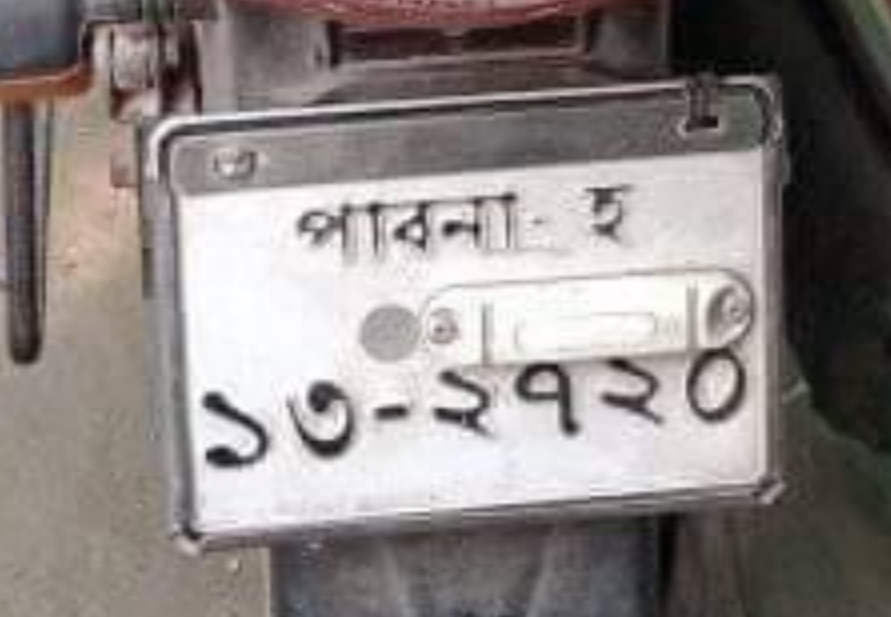 পাবনা - হ
১৩-২৭২০